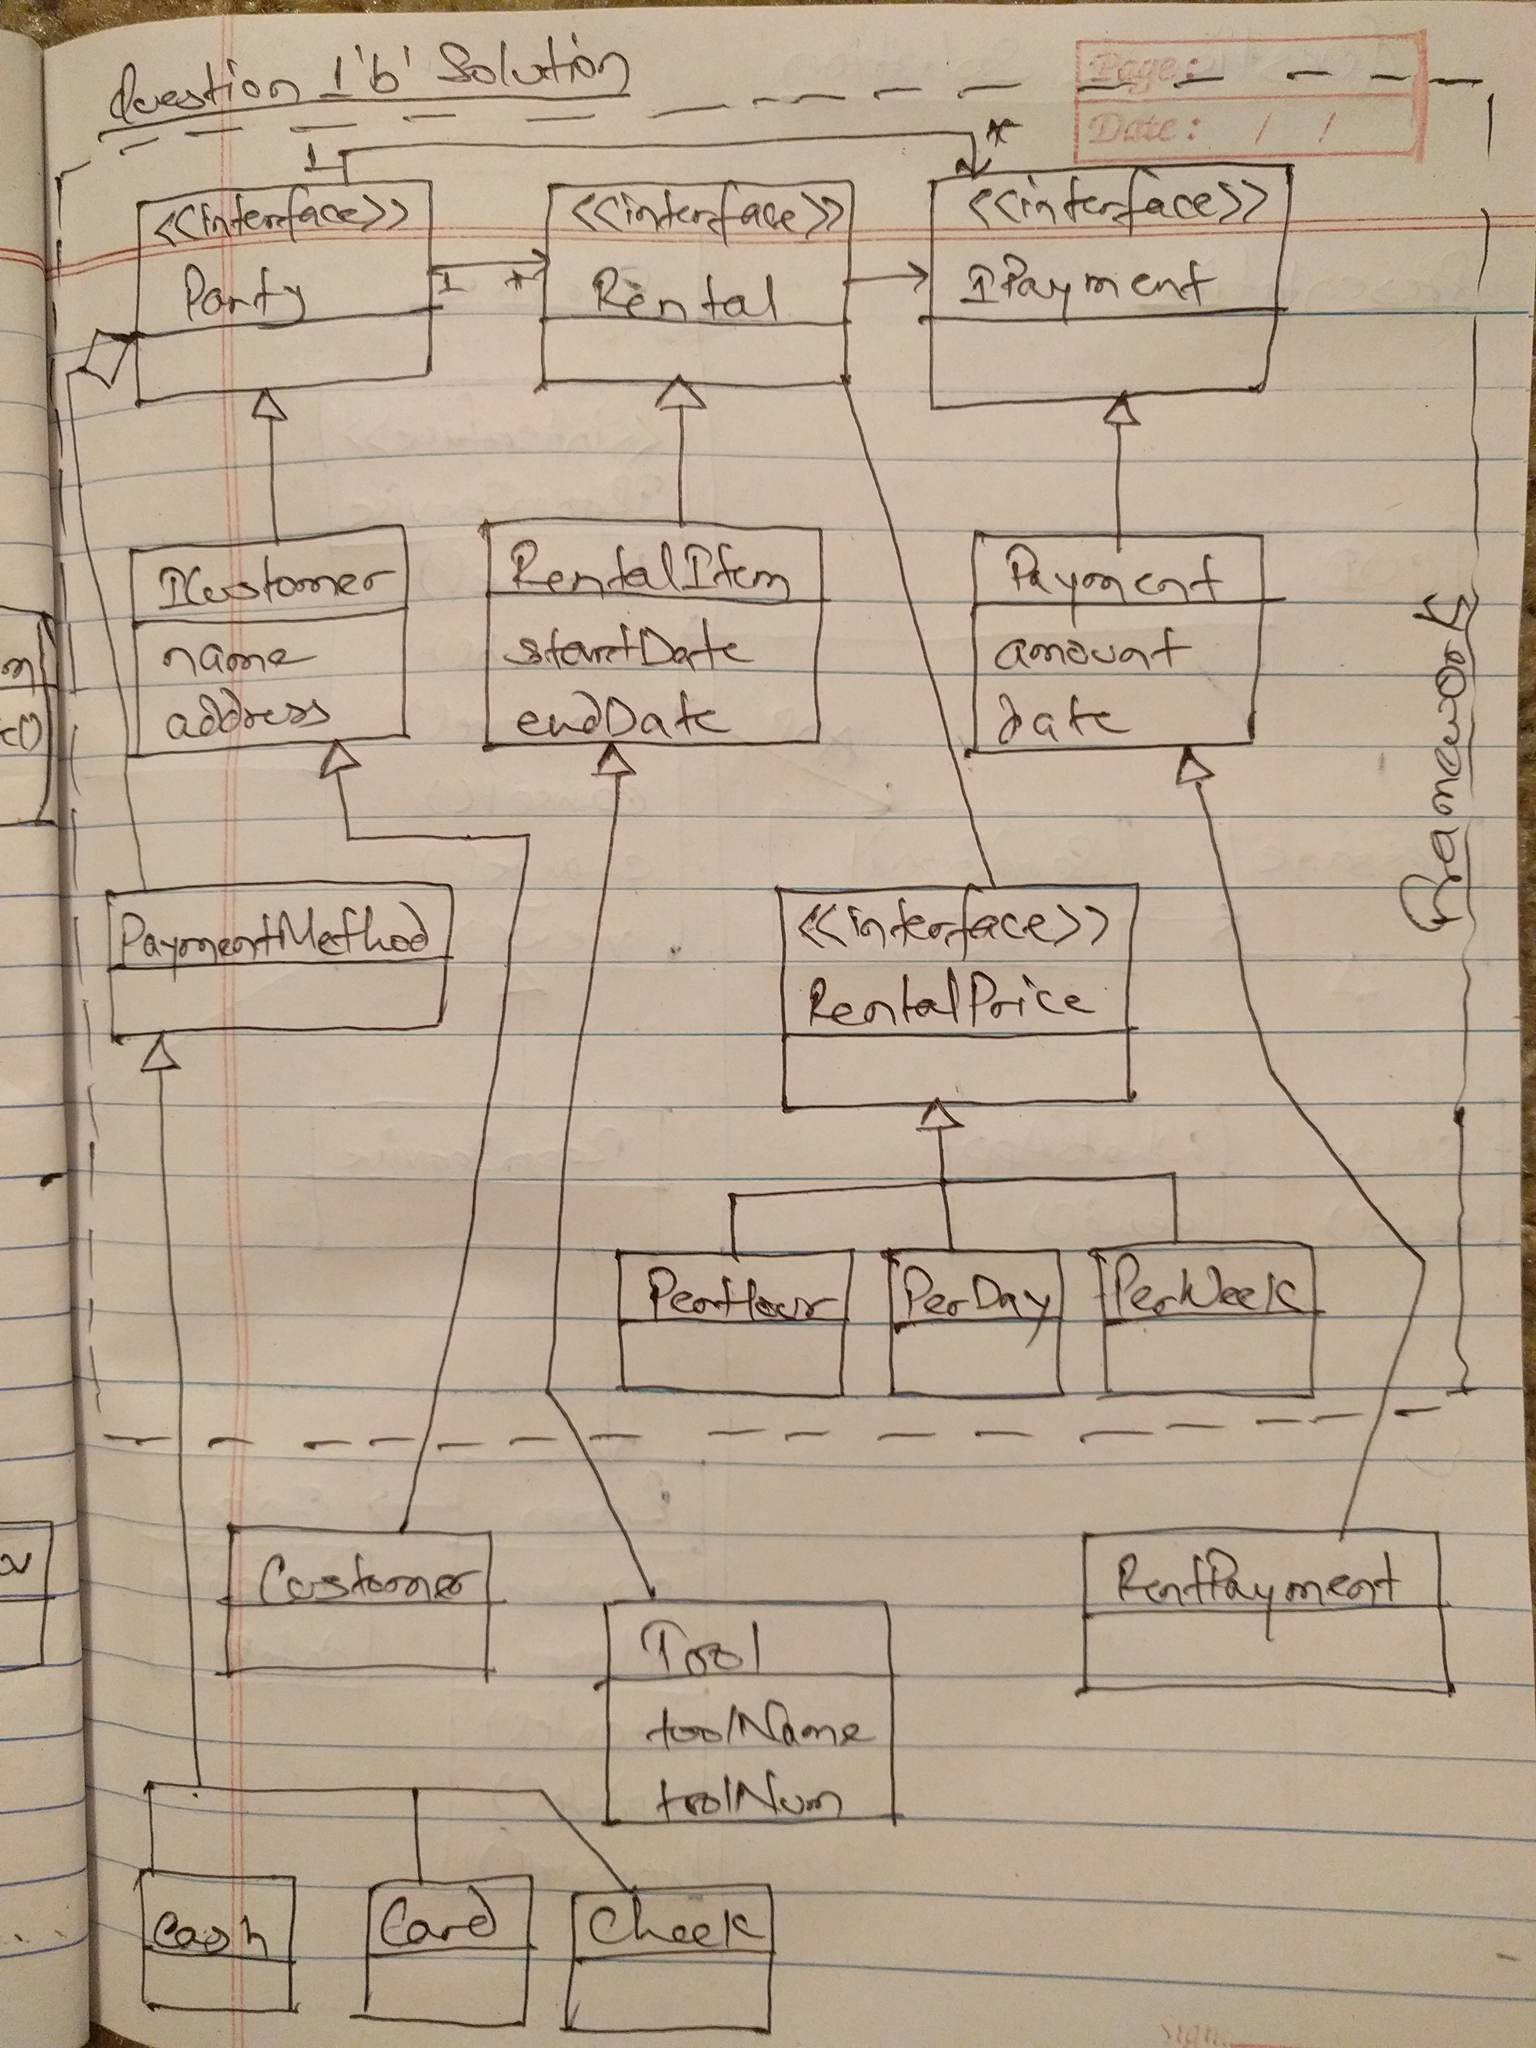 Question 1 'b' Solution
Page:
Date: / /
1
*
<<interface>>
Party
1 *
<<interface>>
Rental
<<interface>>
IPayment
ICustomer
name
address
RentalItem
startDate
endDate
Payment
amount
date
Framework
PaymentMethod
<<interface>>
RentalPrice
PerHour
PerDay
PerWeek
Customer
Tool
toolName
toolNum
RentPayment
Cash
Card
Check